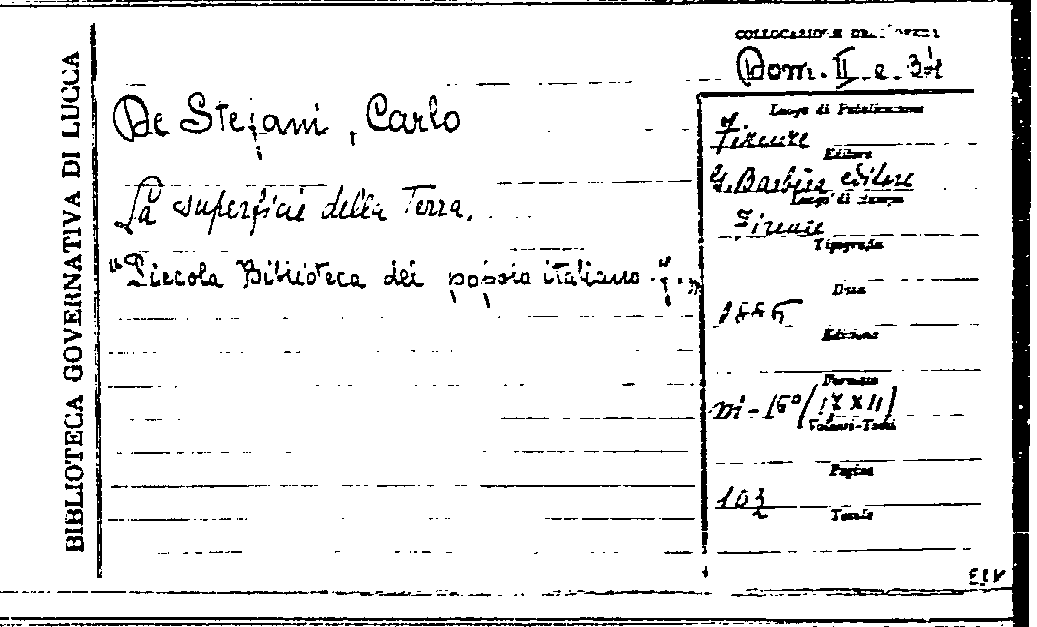 BIBLIOTECA GOVERNATIVA DI LUCCA
COLLOCAZIONE
Dom. II e. 34
De Stefani, Carlo
La superficie della Terra.
"Piccola Biblioteca del popolo italiano
Luogo di Pubblicazione
Firenze
Editore
G. Barbèra editore
Luogo di stampa
Firenze
Tipografia
Data
Edizione
Formato
in-16° (17 X 11)
Volumi-Tomi
Pagine
103
Tavole